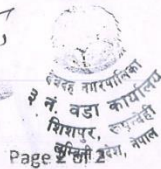 देवदह नगरपालिका
३ नं. वडा कार्यालय
शिशपुर, रुपन्देही
लुम्बिनी प्रदेश, नेपाल
Page 2 of 2